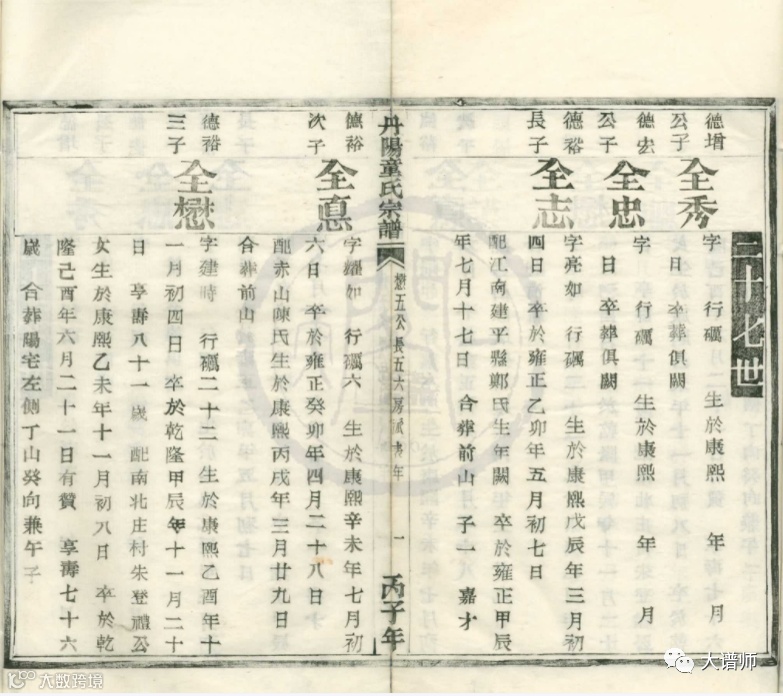 二十七世
德增
公子
全秀
字 行礪 生於康熙 年
月 日 卒葬俱闕
德宏
公子
全忠
字 行礪 生於康熙 年 月
日 卒葬俱闕
德裕
長子
全志
字亮如 行礪 生於康熙戊辰年三月初
四日 卒於雍正乙卯年五月初七日
配江南建平縣鄭氏生年闕 卒於雍正甲辰
年七月十七日 合葬前山 子一 嘉才
丹陽童氏宗譜
懋五公長五大房
一
丙子年
德裕
次子
全惪
字耀如 行礪六 生於康熙辛未年七月初
六日 卒於雍正癸卯年四月二十八日
配赤山陳氏生於康熙丙戌年三月廿九日
合葬前山
德裕
三子
全懋
字建時 行礪二十二 生於康熙乙酉年十
一月初四日 卒於乾隆甲辰年十一月二十
日 享壽八十一歲 配南北庄村朱登禮公
女生於康熙乙未年十一月初八日 卒於乾
隆己酉年六月二十一日有贊 享壽七十六
歲 合葬陽宅左側丁山癸向兼午子
大谱师
大数跨境